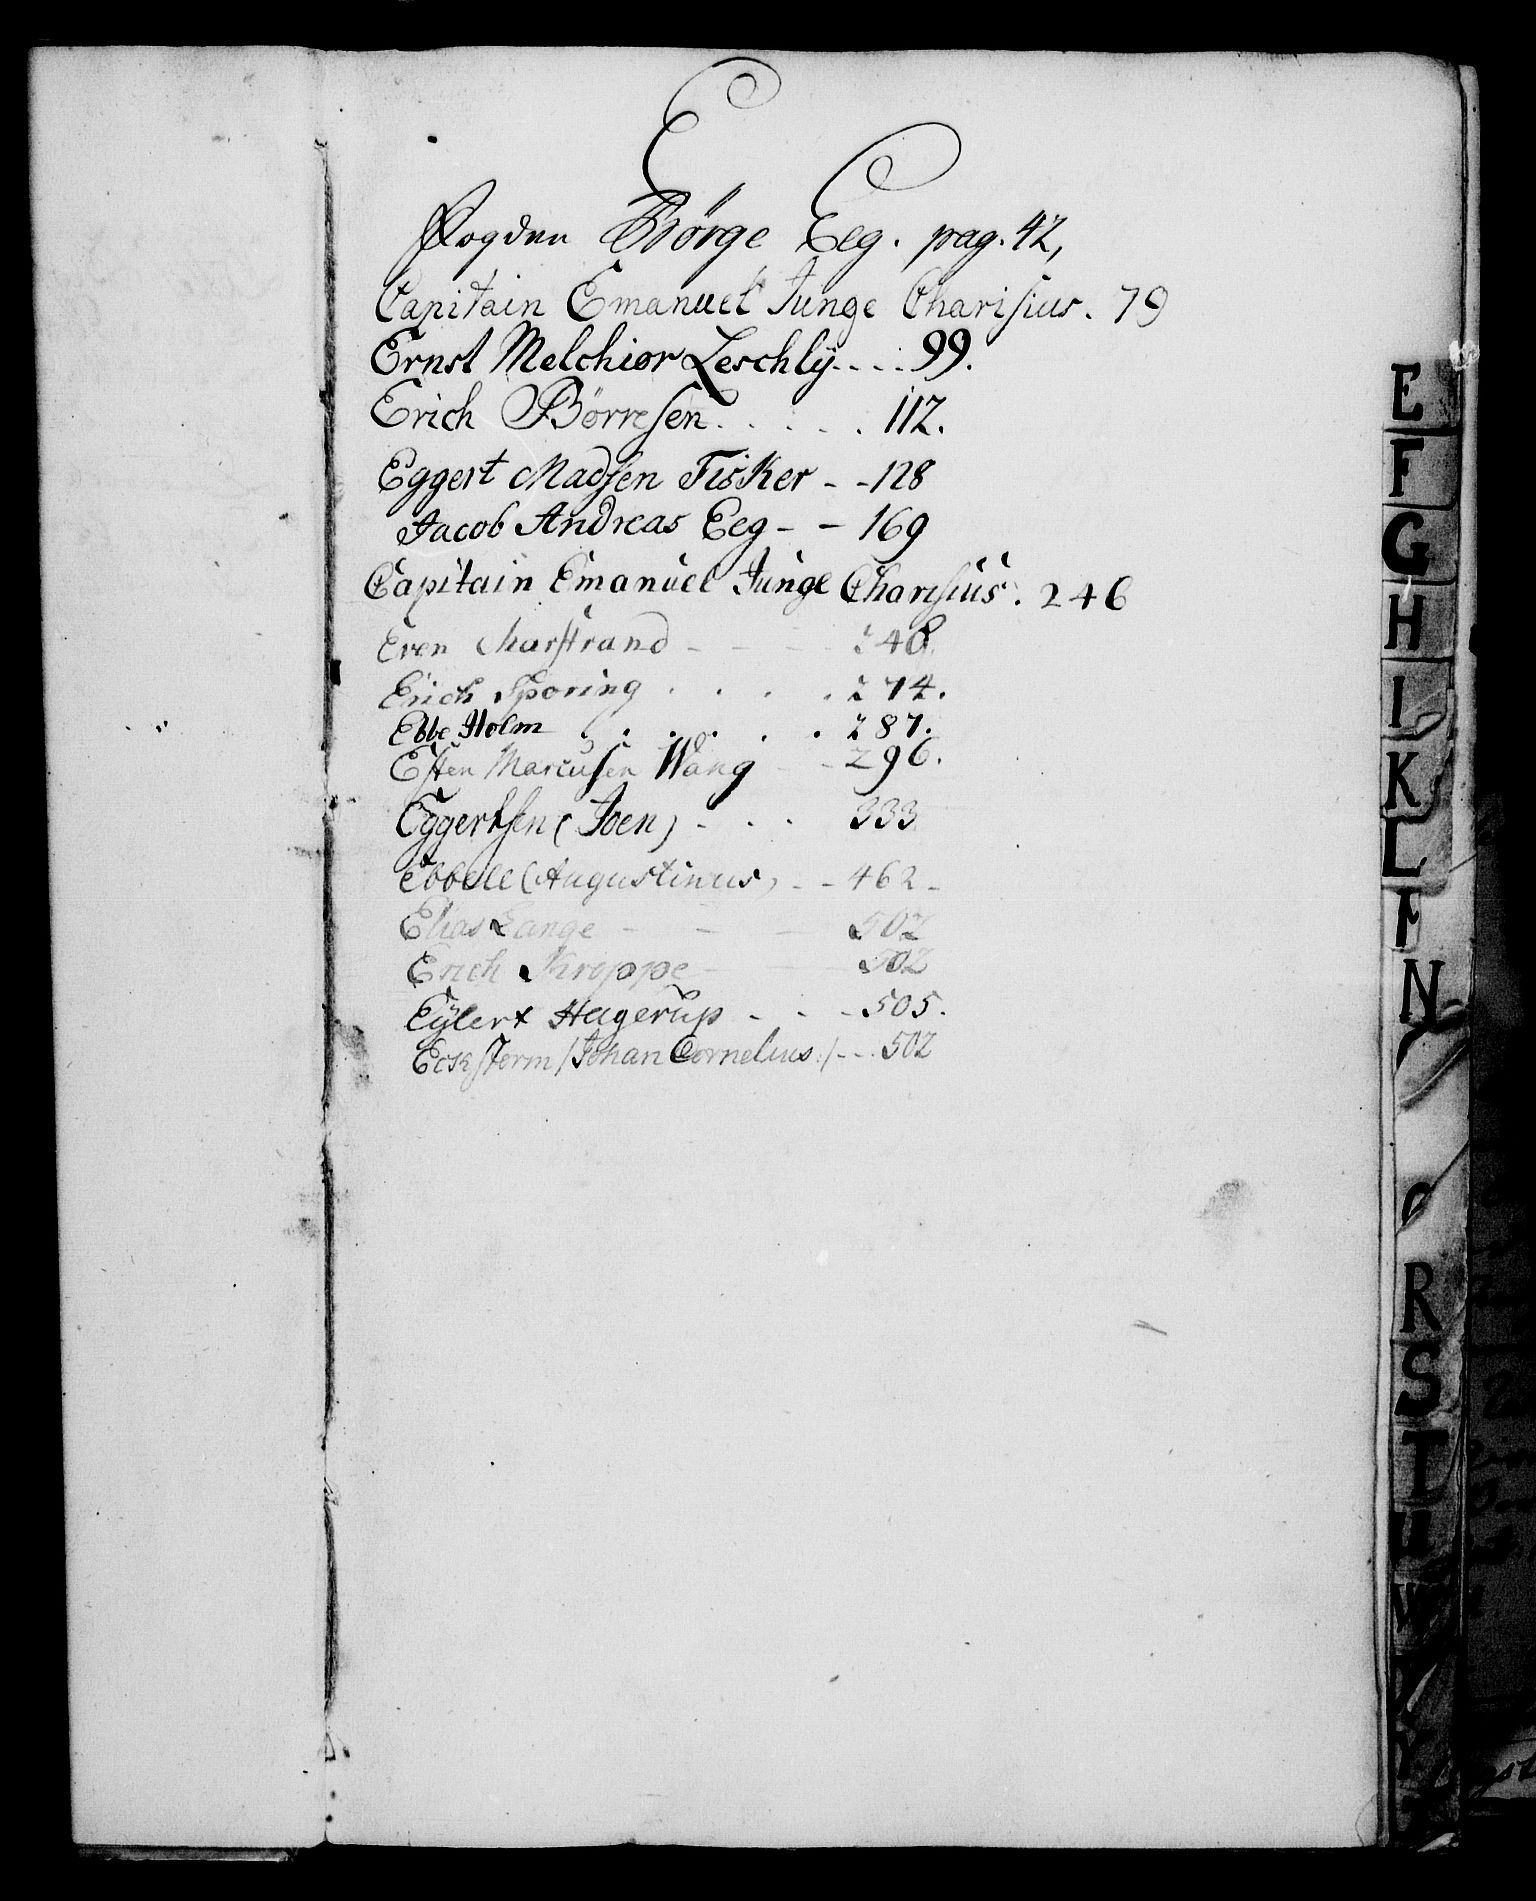 E
Fogden Børge Eeg. pag. 42,
Capitain Emanuel Junge Charisius. 79
Ernst Melchior Leschly.... 99.
Erich Börresen. . . . . . 112.
Eggert Madsen Fisker - - 128
Jacob Andreas Eeg - - 169
Capitain Emanuel Junge Charisius. 246
Even Marstrand - - - - 248
Erich Sporing . . . . . 274.
Ebbe Holm . . . . . . 287.
Esten Marcusen Wang - - 296.
Eggertsen (Joen) - . . 333
Ebbell (Augustinus) - - 462 -
Elias Lange - - - 502
Erich Kroppe - - 502
Eylert Hagerup - - - 505.
Eckstorm /Johan Cornelius:/ - - - 502
E
F
G
H
I
K
L
N
R
S
T
U
W
Y